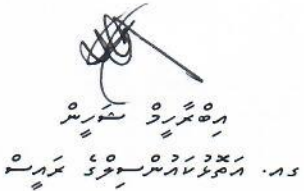 އިބްރާހީމް ޝަހީން
ގއ. އަތޮޅުކައުންސިލްގެ ރައީސް